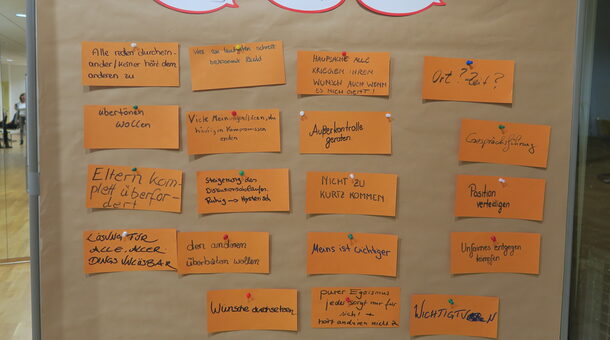 Alle reden durchein-
ander/keiner hört dem
anderen zu
Wer am lautesten schreit
bekommt Bild
HAUPTSACHE ALLE
KRIEGEN IHREN
WUNSCH AUCH WENN
ES NICHT GEHT!
Ort? Zeit?
übertönen
wollen
Viele Meinungen/Ideen, die
häufig in Kompromissen
enden
Außerkontrolle
geraten
Gesprächsführung
Eltern kom-
plett überfor-
dert
Steigerung des
Diskussionsablaufes.
Ruhig → Hysterisch
NICHT ZU
KURZ KOMMEN
Position
verteidigen
LÖSUNG FÜR
ALLE, ALLER-
DINGS UNLÖSBAR
den anderen
überbieten wollen
Meins ist wichtiger
Unfaires entgegen
kämpfen
Wünsche durchsetzen
purer Egoismus
jeder sorgt nur für
sich! +
hört anderen nicht z
WICHTIGTUN